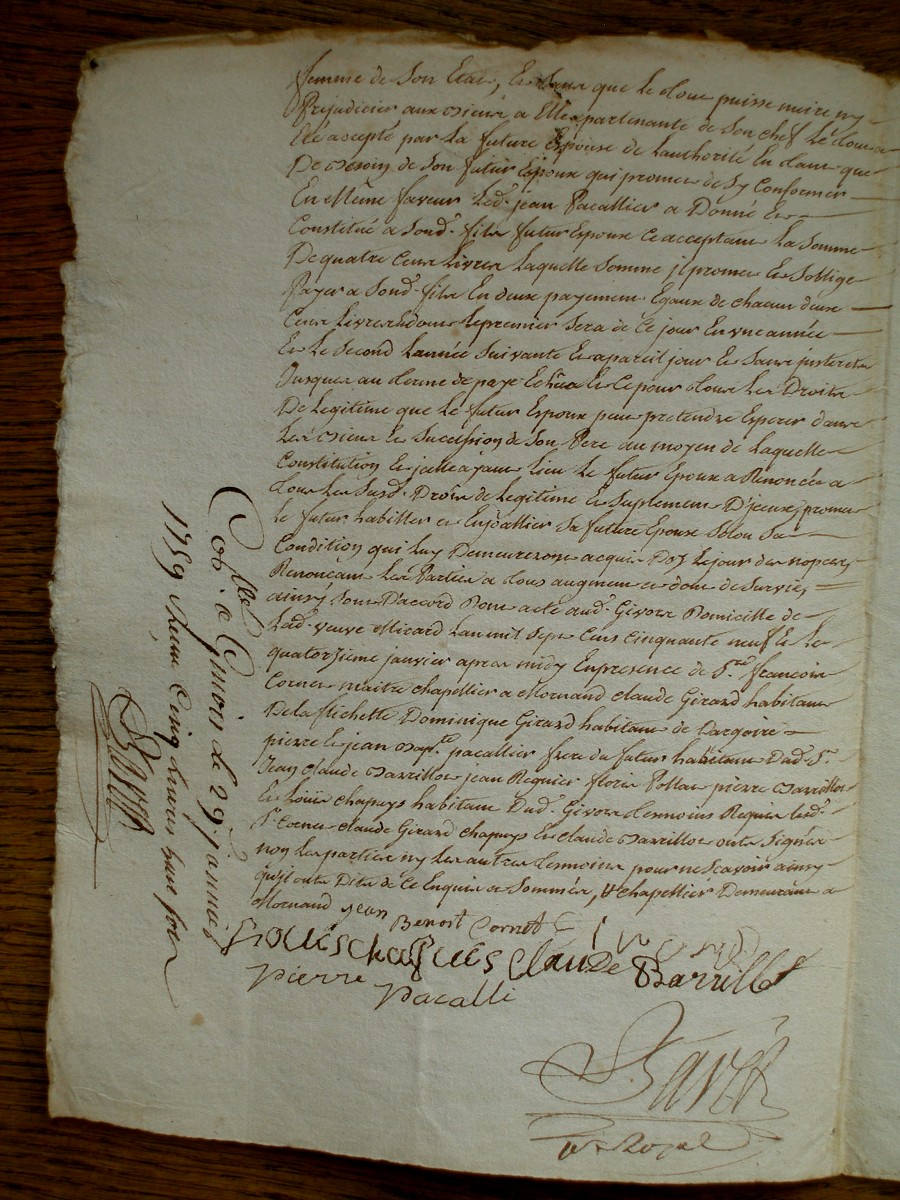 femme de Son Etat, Et Sans que Le dout puisse nuire ny
Prejudicier aux Biens a Elle apartenants de Son chef Le
Ete accepté par La future Epouse de Lauthorité En tant que
De Besoin de Son futur Epoux qui promet de Sy Conformer
En Même faveur Led. jean Pacallier a Donné Et
Constitué a Sond. fils futur Epoux ce acceptant La Somme
De quatre Cent Livres Laquelle Somme jl promet Et Soblige
Payer a Sond. fils En deux payements Egaux de chacun deux
Cent Livres dont Le premier Sera de ce jour En vne année
Et Le Second Lannée Suivante Et a pareil jour Et Sans jnterets
Jusques au terme de paye Echüe Et Ce pour tous Les Droits
De Legitime que Le futur Epoux peut pretendre Esperer dans
Les Biens Et Succession de Son Pere au moyen de Laquelle
Constitution Et jcelle ajant Lieu Le futur Epoux a Renoncée a
tous Les Susd. Droits de Legitime Et Suplement D'jceux, promet
Le futur habiller et Enjoallier Sa future Epouse Selon Sa
Condition qui Luy Demeureront acquis Des Le jour des nopces
Renonceant Les Parties a tous augment et dont de Survies
ainsy Sont D'accord Dont acte aud. Givors Domicille de
Lad. veuve Micard Lan mil Sept Cens Cinquante neuf Et Le
quatorzieme janvier apres midy En presence de Sr. françois
Cornet maitre chapellier a Mornand Claude Girard habitant
De La flichette Dominique Girard habitant de Dargoire
pierre Et jean Bapte. pacallier frere du futur habitant Dud. St.
Jean Claude Barrillot jean Regnier flori Pollat pierre Barrillot
Et Loüis chapuys habitant Dud. Givors tesmoins Requis Lesd.
Sr. Cornet Claude Girard chapuys Et Claude Barrillot ont Signés
non Les parties ny Les autres tesmoins pour ne Scavoir ainsy
quils ont Dits de ce Enquis et Sommés, chapellier Demeurant a
Mornand jean
Benoit Cornet
Loüis chapuies Claude Barrillot
pierre pacalli
Bavet
Nre Royal
Collé a Givors le 29. janvier
1759 Reçu Cinq Livres huit sols
Bavet